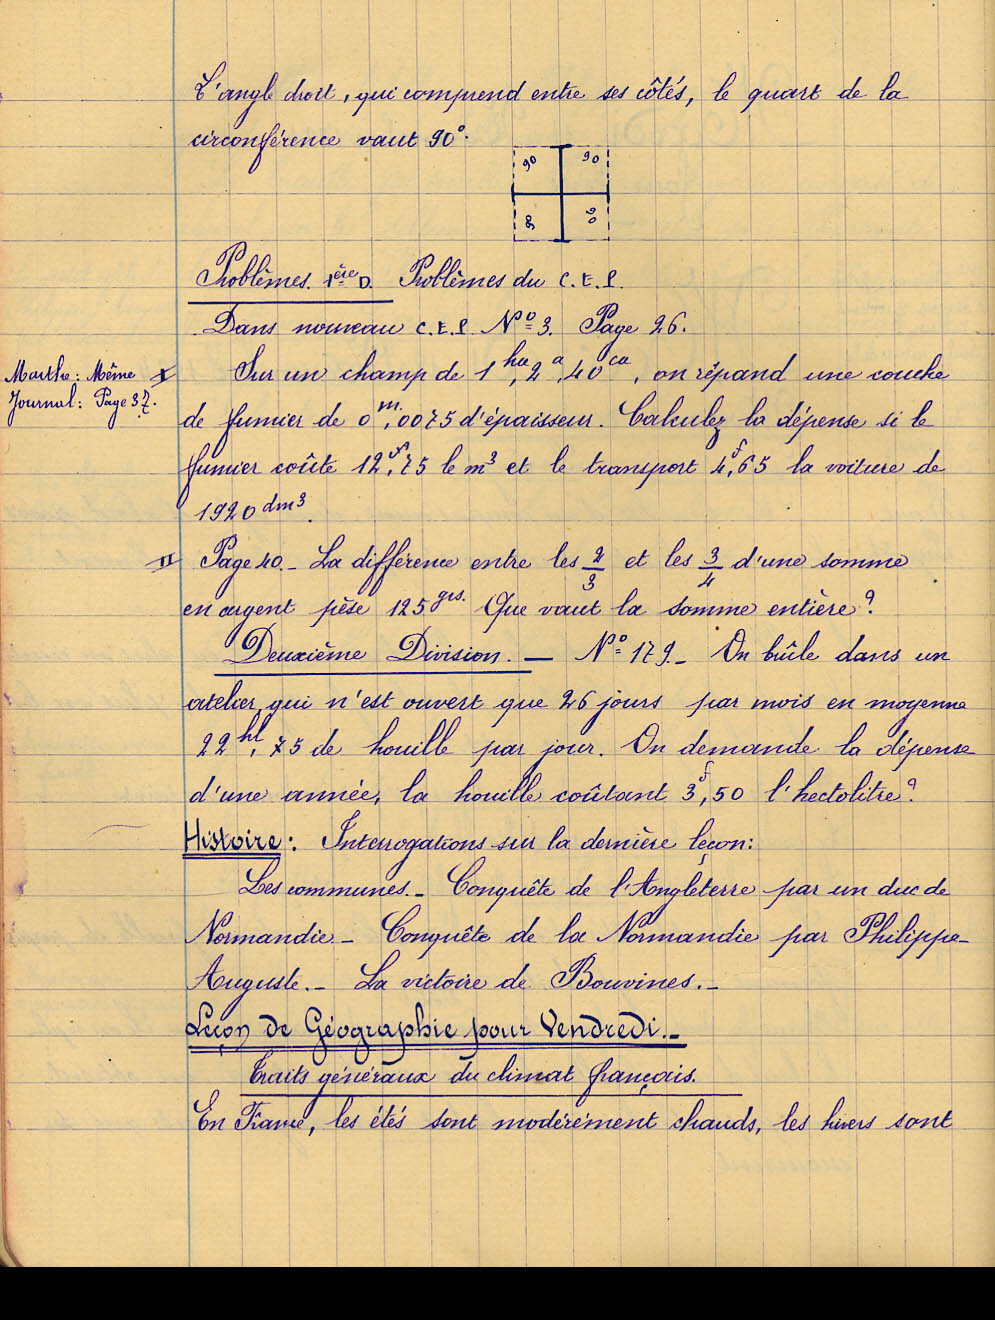 L'angle droit, qui comprend entre ses côtés, le quart de la
circonférence vaut 90°.
90 90
90 90
Problèmes. 1ère D. Problèmes du C.E.P.
Dans nouveau C.E.P. N° 3. Page 26.
Marthe: Même
Journal: Page 37.
I Sur un champ de 1 ha, 2 a, 40 ca, on répand une couche
de fumier de 0 m,0075 d'épaisseur. Calculez la dépense si le
fumier coûte 12 f,75 le m³ et le transport 4 f,65 la voiture de
1920 dm³.
II Page 40._ La différence entre les 2/3 et les 3/4 d'une somme
en argent pèse 125 grs. Que vaut la somme entière?
Deuxième Division. — N° 179._ On brûle dans un
atelier qui n'est ouvert que 26 jours par mois en moyenne
22 hl,75 de houille par jour. On demande la dépense
d'une année, la houille coûtant 3 f,50 l'hectolitre?
Histoire: Interrogations sur la dernière leçon:
Les communes._ Conquête de l'Angleterre par un duc de
Normandie_ Conquête de la Normandie par Philippe-
Auguste._ La victoire de Bouvines._
Leçon de Géographie pour Vendredi._
Traits généraux du climat français.
En France, les étés sont modérément chauds, les hivers sont